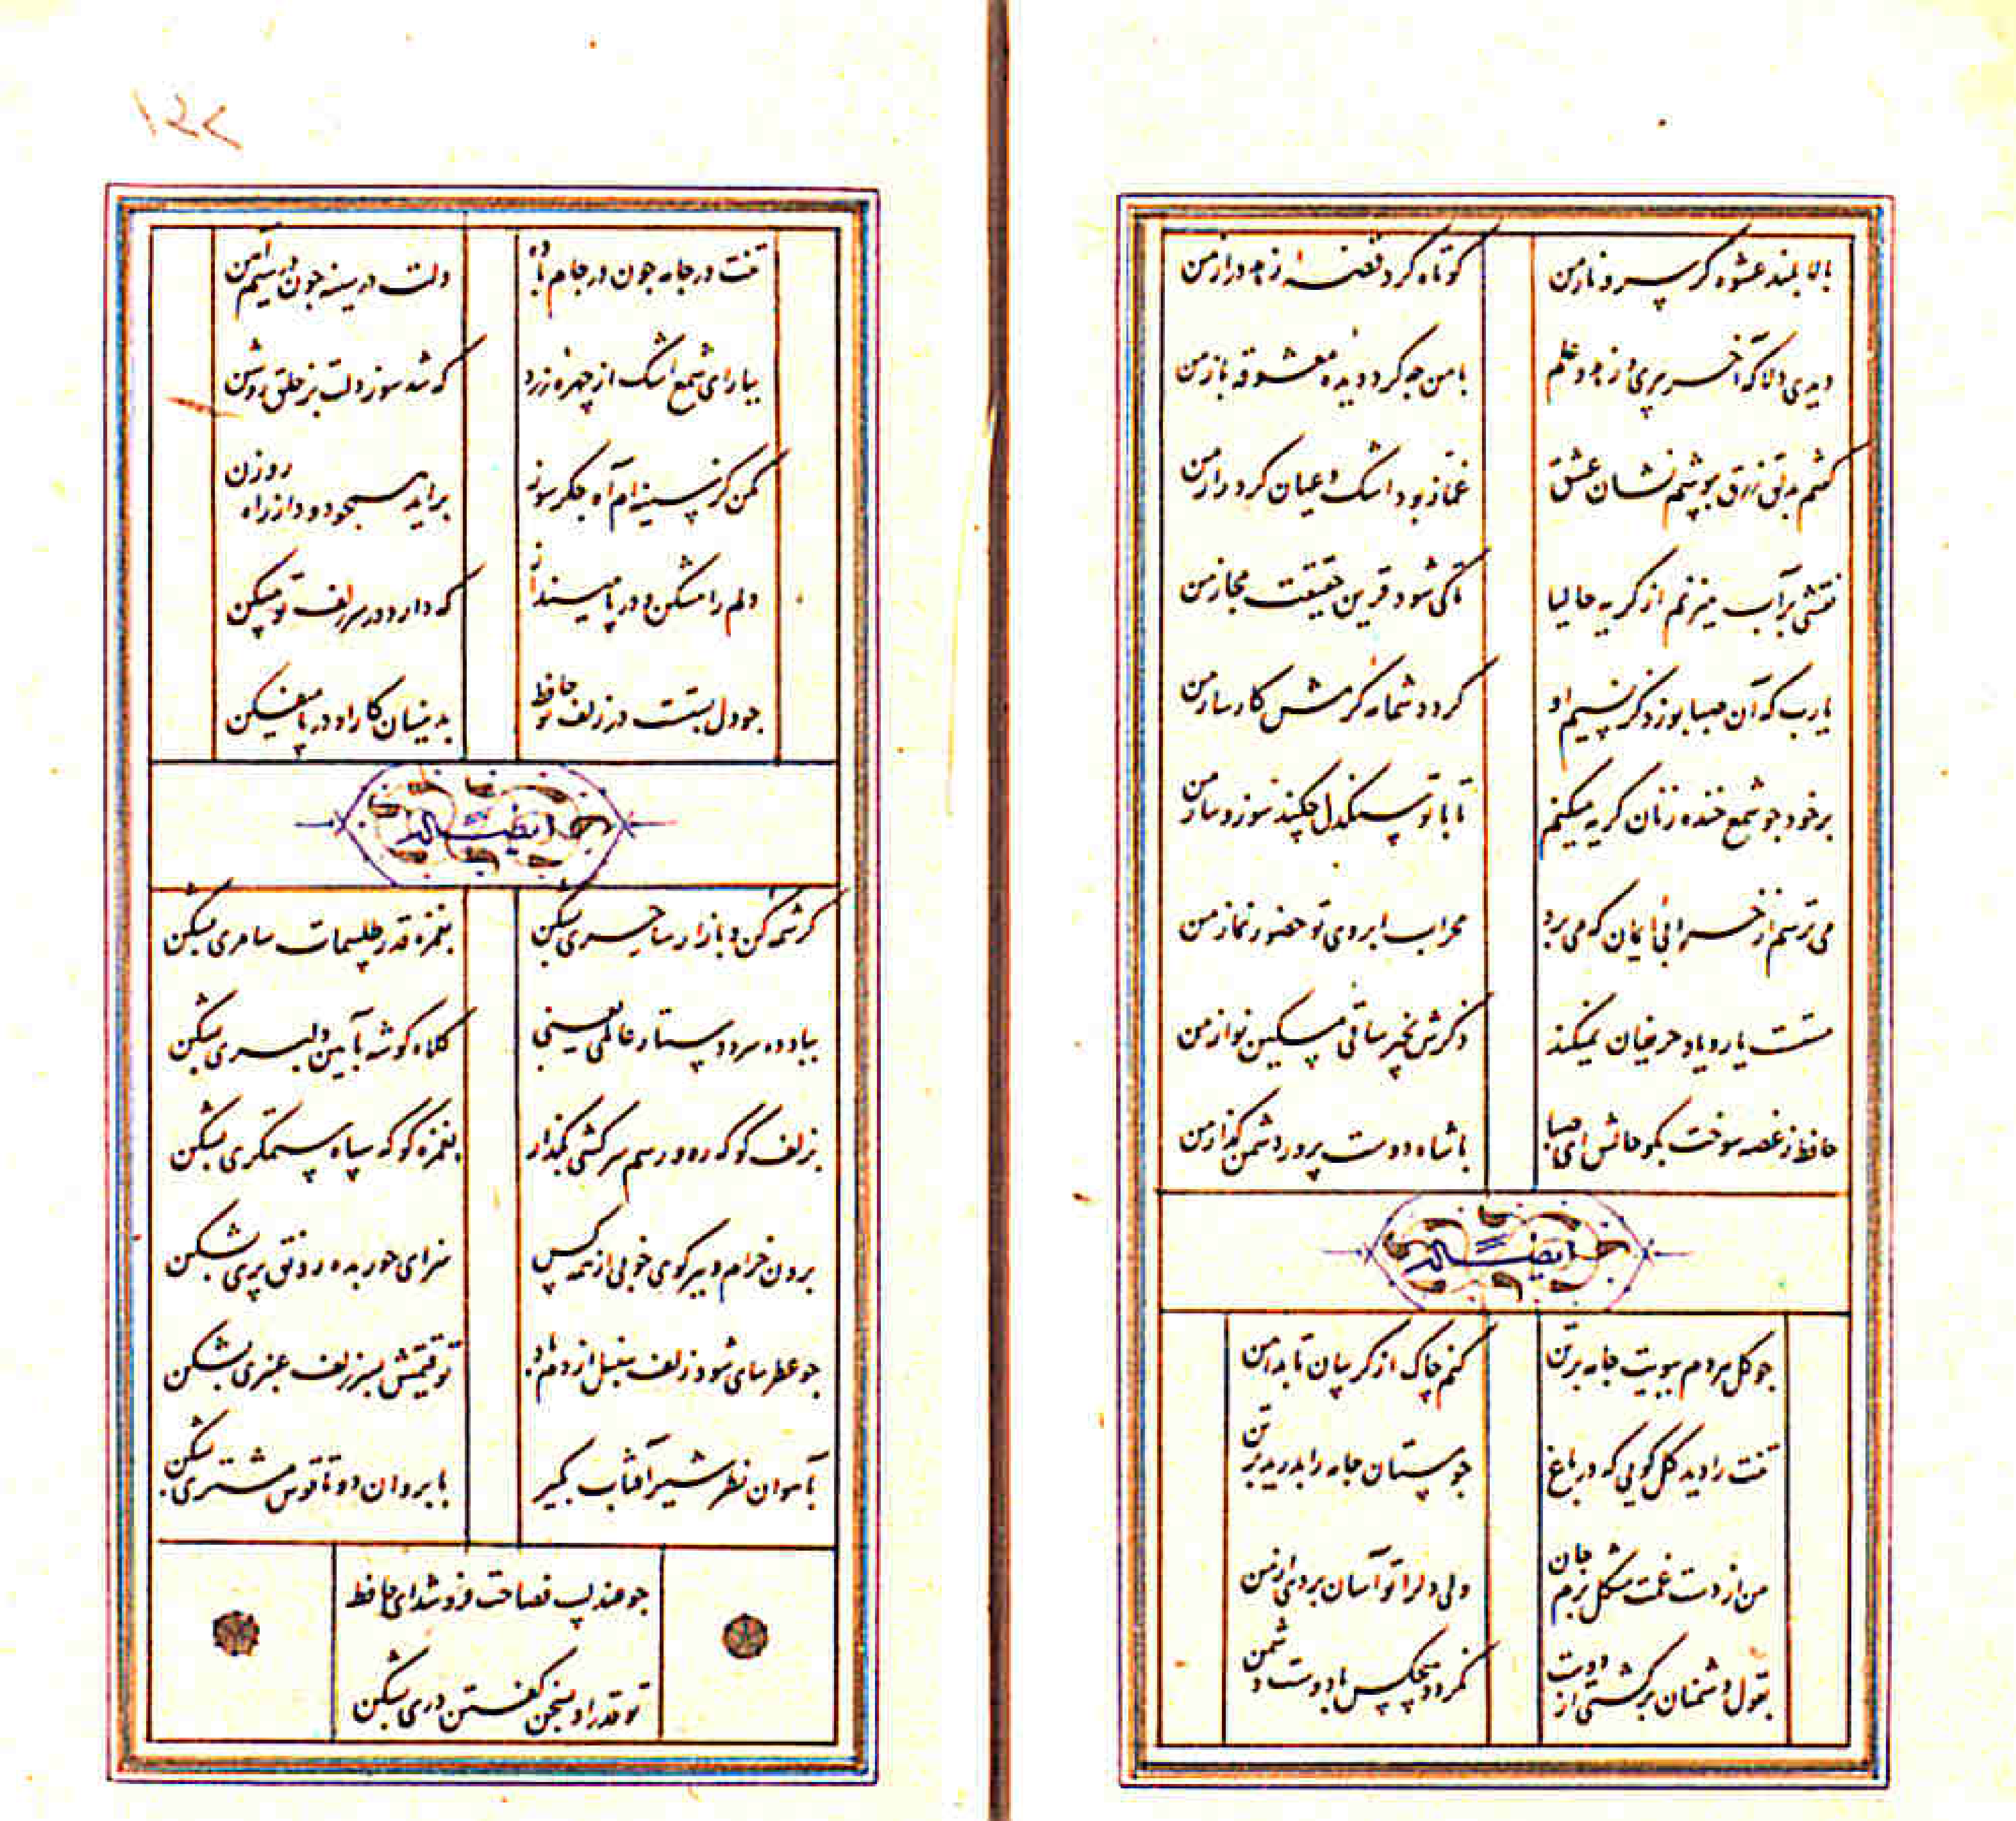 بالا بلند عشوه گر سرو ناز من
کوتاه کرد قصه زهد دراز من
دیدی دلا که آخر پیری و زهد و علم
با من چه کرد دیده معشوقه باز من
گفتم بدلق زرق بپوشم نشان عشق
غماز بود اشک و عیان کرد راز من
نقشی بر آب میزنم از گریه حالیا
تا کی شود قرین حقیقت مجاز من
یارب که آن صبا بوزد کز نسیم او
گردد شمامه کرمش کارساز من
بر خود چو شمع خنده زنان گریه میکنم
تا با تو سنگدل چکند سوز و ساز من
می ترسم از خرابی ایمان که می برد
محراب ابروی تو حضور نماز من
مستست یار و یاد حریفان نمیکند
ذکرش بخیر ساقی مسکین نواز من
حافظ ز غصه سوخت بگو حالش ای صبا
با شاه دوست پرور دشمن گداز من
ایضا له
چو گل هر دم ببویت جامه بر تن
کنم چاک از گریبان تا بدامن
تنت را دید گل گویی که در باغ
چو مستان جامه را بدرید بر تن
من از دست غمت مشکل برم جان
ولی دلرا تو آسان بردی از من
بقول دشمنان برگشتی از دوست
نگردد هیچکس با دوست دشمن
۱۲۲
تنت در جامه چون در جام باده
دلت در سینه چون در سیم آهن
ببار ای شمع اشک از چهره زرد
که شد سوز دلت بر خلق روشن
مکن کز سینه ام آه جگر سوز
براید همچو دود از راه روزن
دلم را مشکن و در پا مینداز
که دارد در سر زلف تو مسکن
چو دل بستست در زلف تو حافظ
بدینسان کار او در پا میفکن
ایضا له
کرشمه کن و بازار ساحری بشکن
بغمزه قدر طلسمات سامری بشکن
بباد ده سر و دستار عالمی یعنی
کلاه گوشه بآیین دلبری بشکن
بزلف گو که ره و رسم سرکشی بگذار
بغمزه گو که سپاه ستمگری بشکن
برون خرام و ببر گوی خوبی از همه کس
سزای حور بده رونق پری بشکن
چو عطرسای شود زلف سنبل از دم باد
تو قیمتش بسر زلف عنبری بشکن
بآهوان نظر شیر آفتاب بگیر
بابروان دوتا قوس مشتری بشکن
چو عندلیب فصاحت فروشد ای حافظ
تو قدر او بسخن گفتن دری بشکن